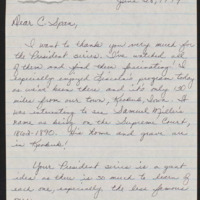 June 28, 1999
Dear C-Span,
I want to thank you very much for
the President series. I've watched all
of them and find them fascinating! I
especially enjoyed Lincoln's program today
as we've been there and it's only 130
miles from our town, Keokuk, Iowa. It
was interesting to see Samuel Miller's
name as being on the Supreme Court,
1862-1890. His home and grave are
in Keokuk!
Your President series is a great
idea as there is so much to learn of
each one, especially the less famous